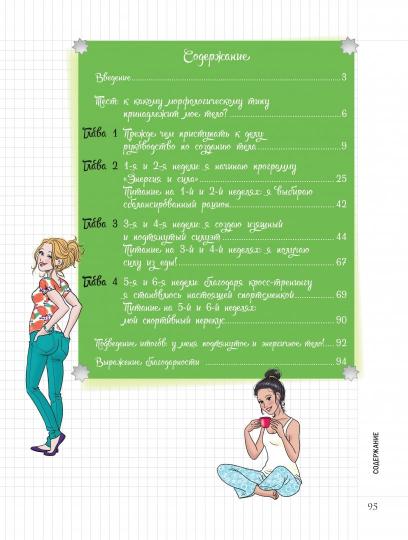 Содержание
Введение 3
Тест: к какому морфологическому типу
принадлежит мое тело? 6
Глава 1 Прежде чем приступать к делу:
руководство по созданию тела 9
Глава 2 1-я и 2-я недели: я начинаю программу
«Энергия и сила» 25
Питание на 1-й и 2-й неделях: я выбираю
сбалансированный рацион 42
Глава 3 3-я и 4-я недели: я создаю изящный
и подтянутый силуэт 44
Питание на 3-й и 4-й неделях: я получаю
силу из еды! 67
Глава 4 5-я и 6-я недели: благодаря кросс-тренингу
я становлюсь настоящей спортсменкой 69
Питание на 5-й и 6-й неделях:
мой спортивный перекус 90
Подведение итогов: у меня подтянутое и энергичное тело! 92
Выражение благодарности 94
СОДЕРЖАНИЕ
95